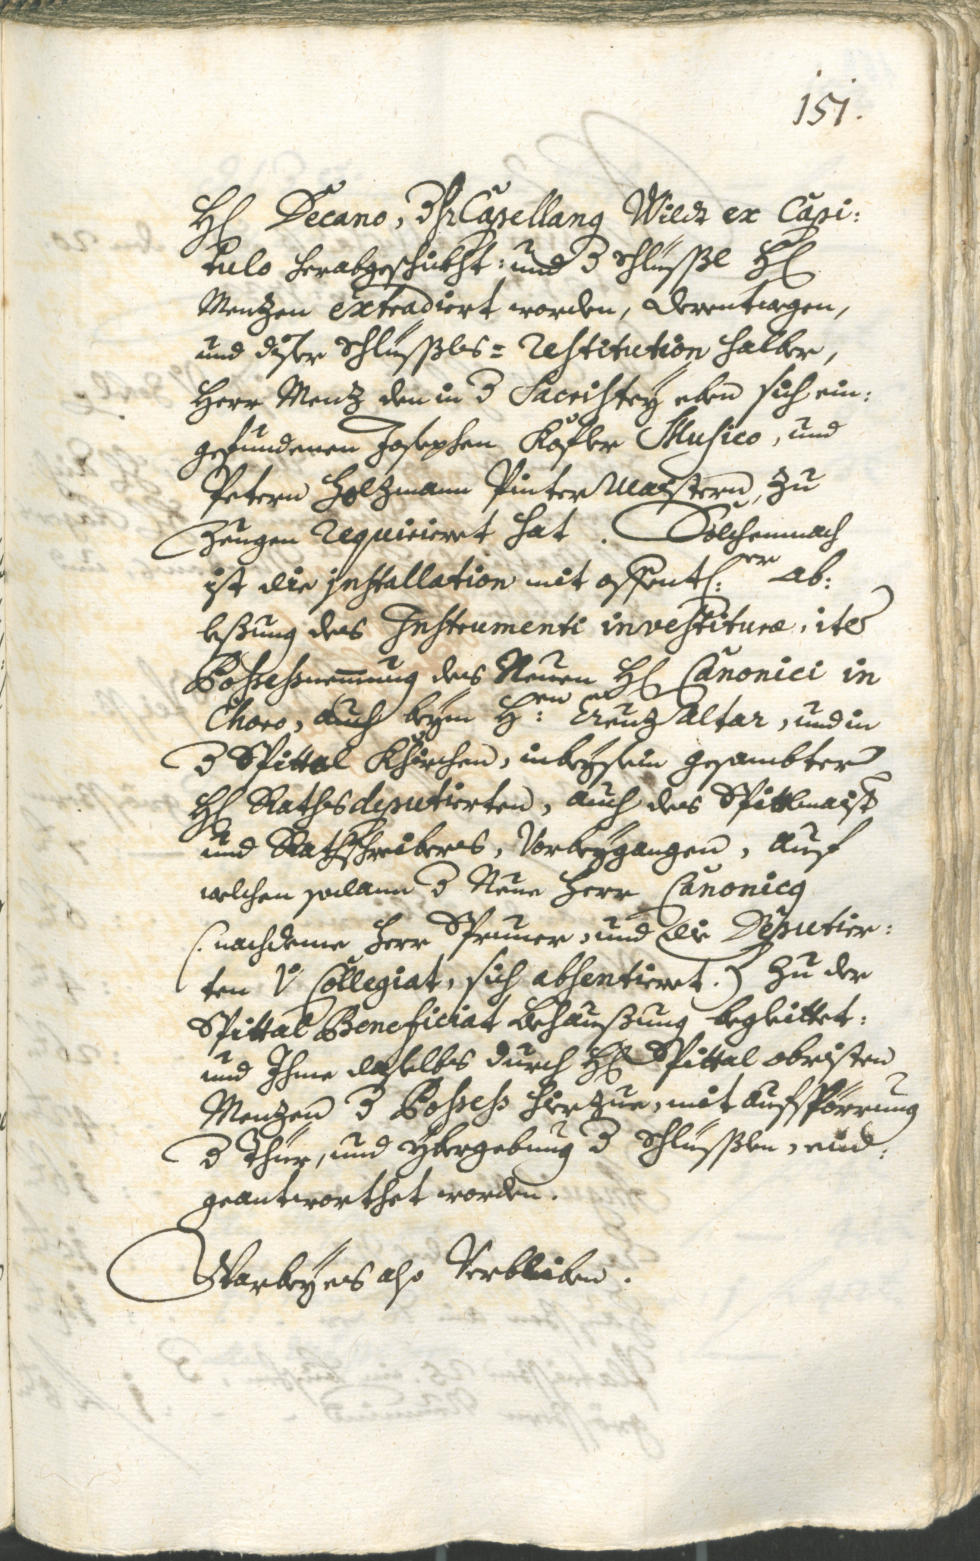 151.
H: Decano, Capellang Wildt ex Capi:
tulo herabgeschickht: und 3 schlüßl H:
Mentzen extradiert worden, derentwegen,
und diser schlüßles = Restitution halber,
Herr Mentz den in 3 Sacristey eben sich ein:
gefundenen Josephen Kofler Musico, und
Petern Holtzmann Pinter Maistern, zu
Zeugen requirieret hat. Solchemnach
ist die installation mit offentl:er Ab:
leßung des Instrumenti investituræ, ite
Possessnemung des Neuen H: Canonici in
Choro, auch beym H:en Creutz Altar, und in
3 Spittal Khürchen, in beysein gesambter
H: Raths deputierten, auch des Spittlmaist
und Rathschreibers, Vorbeygangen, auf
welchen sodann 3 Neue Herr Canonicg
(: nachdeme Herr Spruner, und die Deputier:
ten V Collegiat, sich absentieret.) zu der
Spittal Beneficiat Behaußung begleittet:
und Ihme daselbs durch H: Spittal obristen
Mentzen 3 Possess hierzue, mit Aufspörrung
3 Thür, und Ybergebung 3 Schlüßlen, eind:
geantworthet worden.
Warbey es also Verbliben.